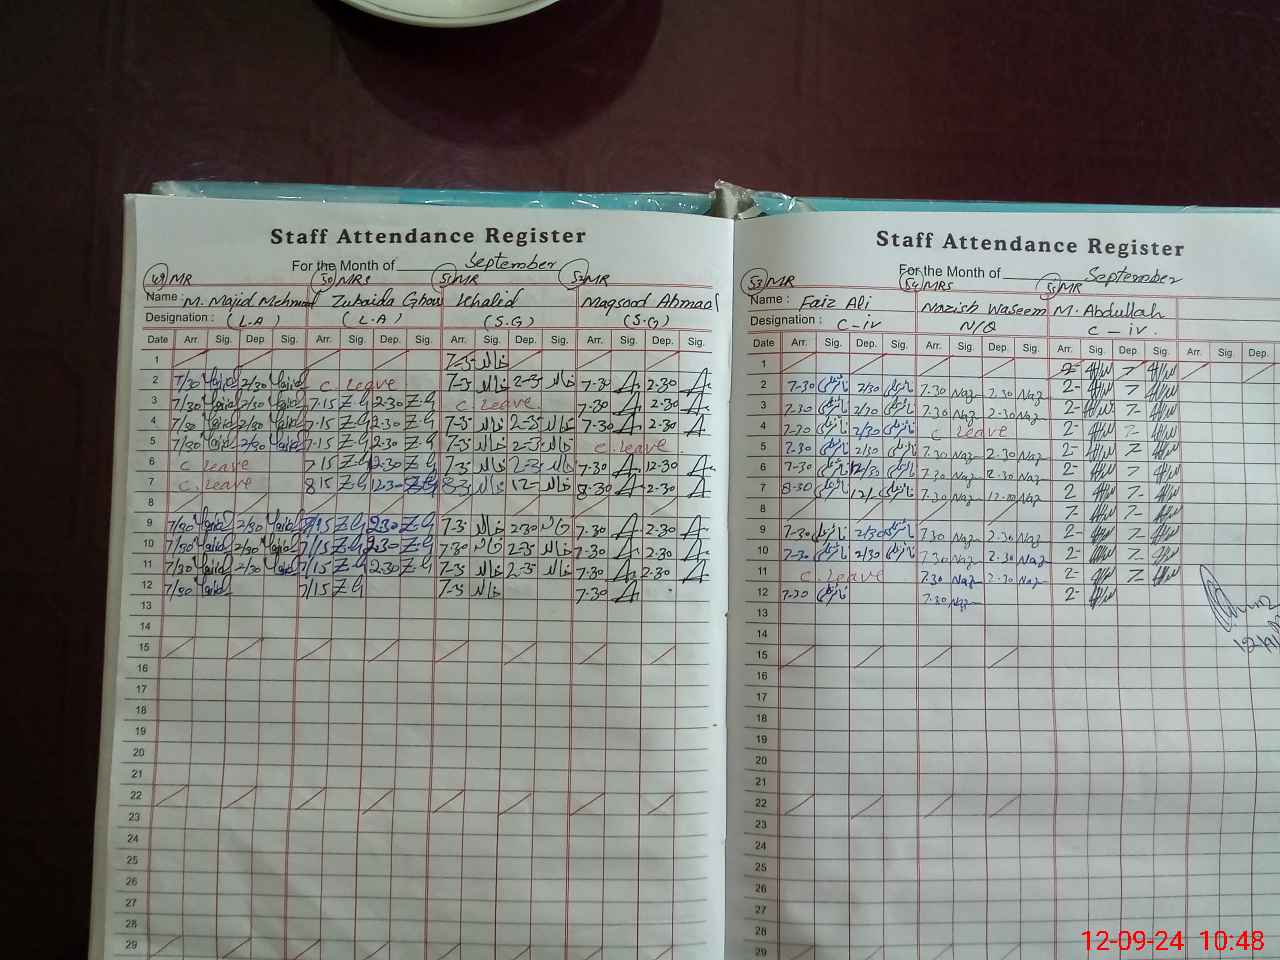 Staff Attendance Register
For the Month of September
49 MR 50 MRS 51 MR 52 MR
Name : M. Majid Mehmood Zubaida Ghous Khalid Maqsood Ahmad
Designation : (L.A) (L.A) (S.G) (S.G)
Date Arr. Sig. Dep. Sig. Arr. Sig. Dep. Sig. Arr. Sig. Dep. Sig. Arr. Sig. Dep. Sig.
1 7-3 خالد
2 7/30 Majid 2/30 Majid C. Leave 7-3 خالد 2-3 خالد 7-30 A 2-30 A
3 7/30 Majid 2/30 Majid 7-15 Z.G 2-30 Z.G C. Leave 7-30 A 2-30 A
4 7/30 Majid 2/30 Majid 7-15 Z.G 2-30 Z.G 7-3 خالد 2-3 خالد 7-30 A 2-30 A
5 7/30 Majid 2/30 Majid 7-15 Z.G 2-30 Z.G 7-3 خالد 2-3 خالد C. Leave
6 C. Leave 7 15 Z.G 12-30 Z.G 7-3 خالد خالد 7-30 A 12-30 A
7 C. Leave 8 15 Z.G 12-30 Z.G 8-3 خالد 12- خالد 8-30 A 2-30 A
8
9 7/30 Majid 2/30 Majid 7/15 Z.G 2-30 Z.G 7-3 خالد 2-30 خالد 7-30 A 2-30 A
10 7/30 Majid 2/30 Majid 7/15 Z.G 2-30 Z.G 7-30 خالد 2-3 خالد 7-30 A 2-30 A
11 7/30 Majid 2/30 Majid 7/15 Z.G 2-30 Z.G 7-3 خالد 2-3 خالد 7-30 A 2-30 A
12 7/30 Majid 7/15 Z.G 7-3 خالد 7-30 A
13
14
15
16
17
18
19
20
21
22
23
24
25
26
27
28
29
Staff Attendance Register
For the Month of September
53 MR 54 MRS 55 MR
Name : Faiz Ali Nazish Waseem M. Abdullah
Designation : C-iv N/Q C-iv.
Date Arr. Sig. Dep. Sig. Arr. Sig. Dep. Sig. Arr. Sig. Dep Sig. Arr. Sig. Dep.
1 7
2 7-30 2/30 7.30 Naz 2.30 Naz 2- 7
3 7-30 2/30 7.30 Naz 2-30 Naz 2- 7-
4 7-30 2/30 C Leave 2- 7-
5 7-30 2/30 7.30 Naz 2.30 Naz 2- 7
6 7-30 12/30 7.30 Naz 2.30 Naz 2- 7-
7 8-30 12/ 7.30 Naz 12.00 Naz 2 7-
8 7- 7-
9 7-30 2/30 7.30 Naz 2.30 Naz 2- 7-
10 7-30 2/30 7.30 Naz 2.30 Naz 2- 7-
11 C. Leave 7.30 Naz 2.30 Naz 2- 7-
12 7-30 7.30 Naz 2-
13
14
15
16
17
18
19
20
21
22
23
24
25
26
27
28
29
12-09-24 10:48